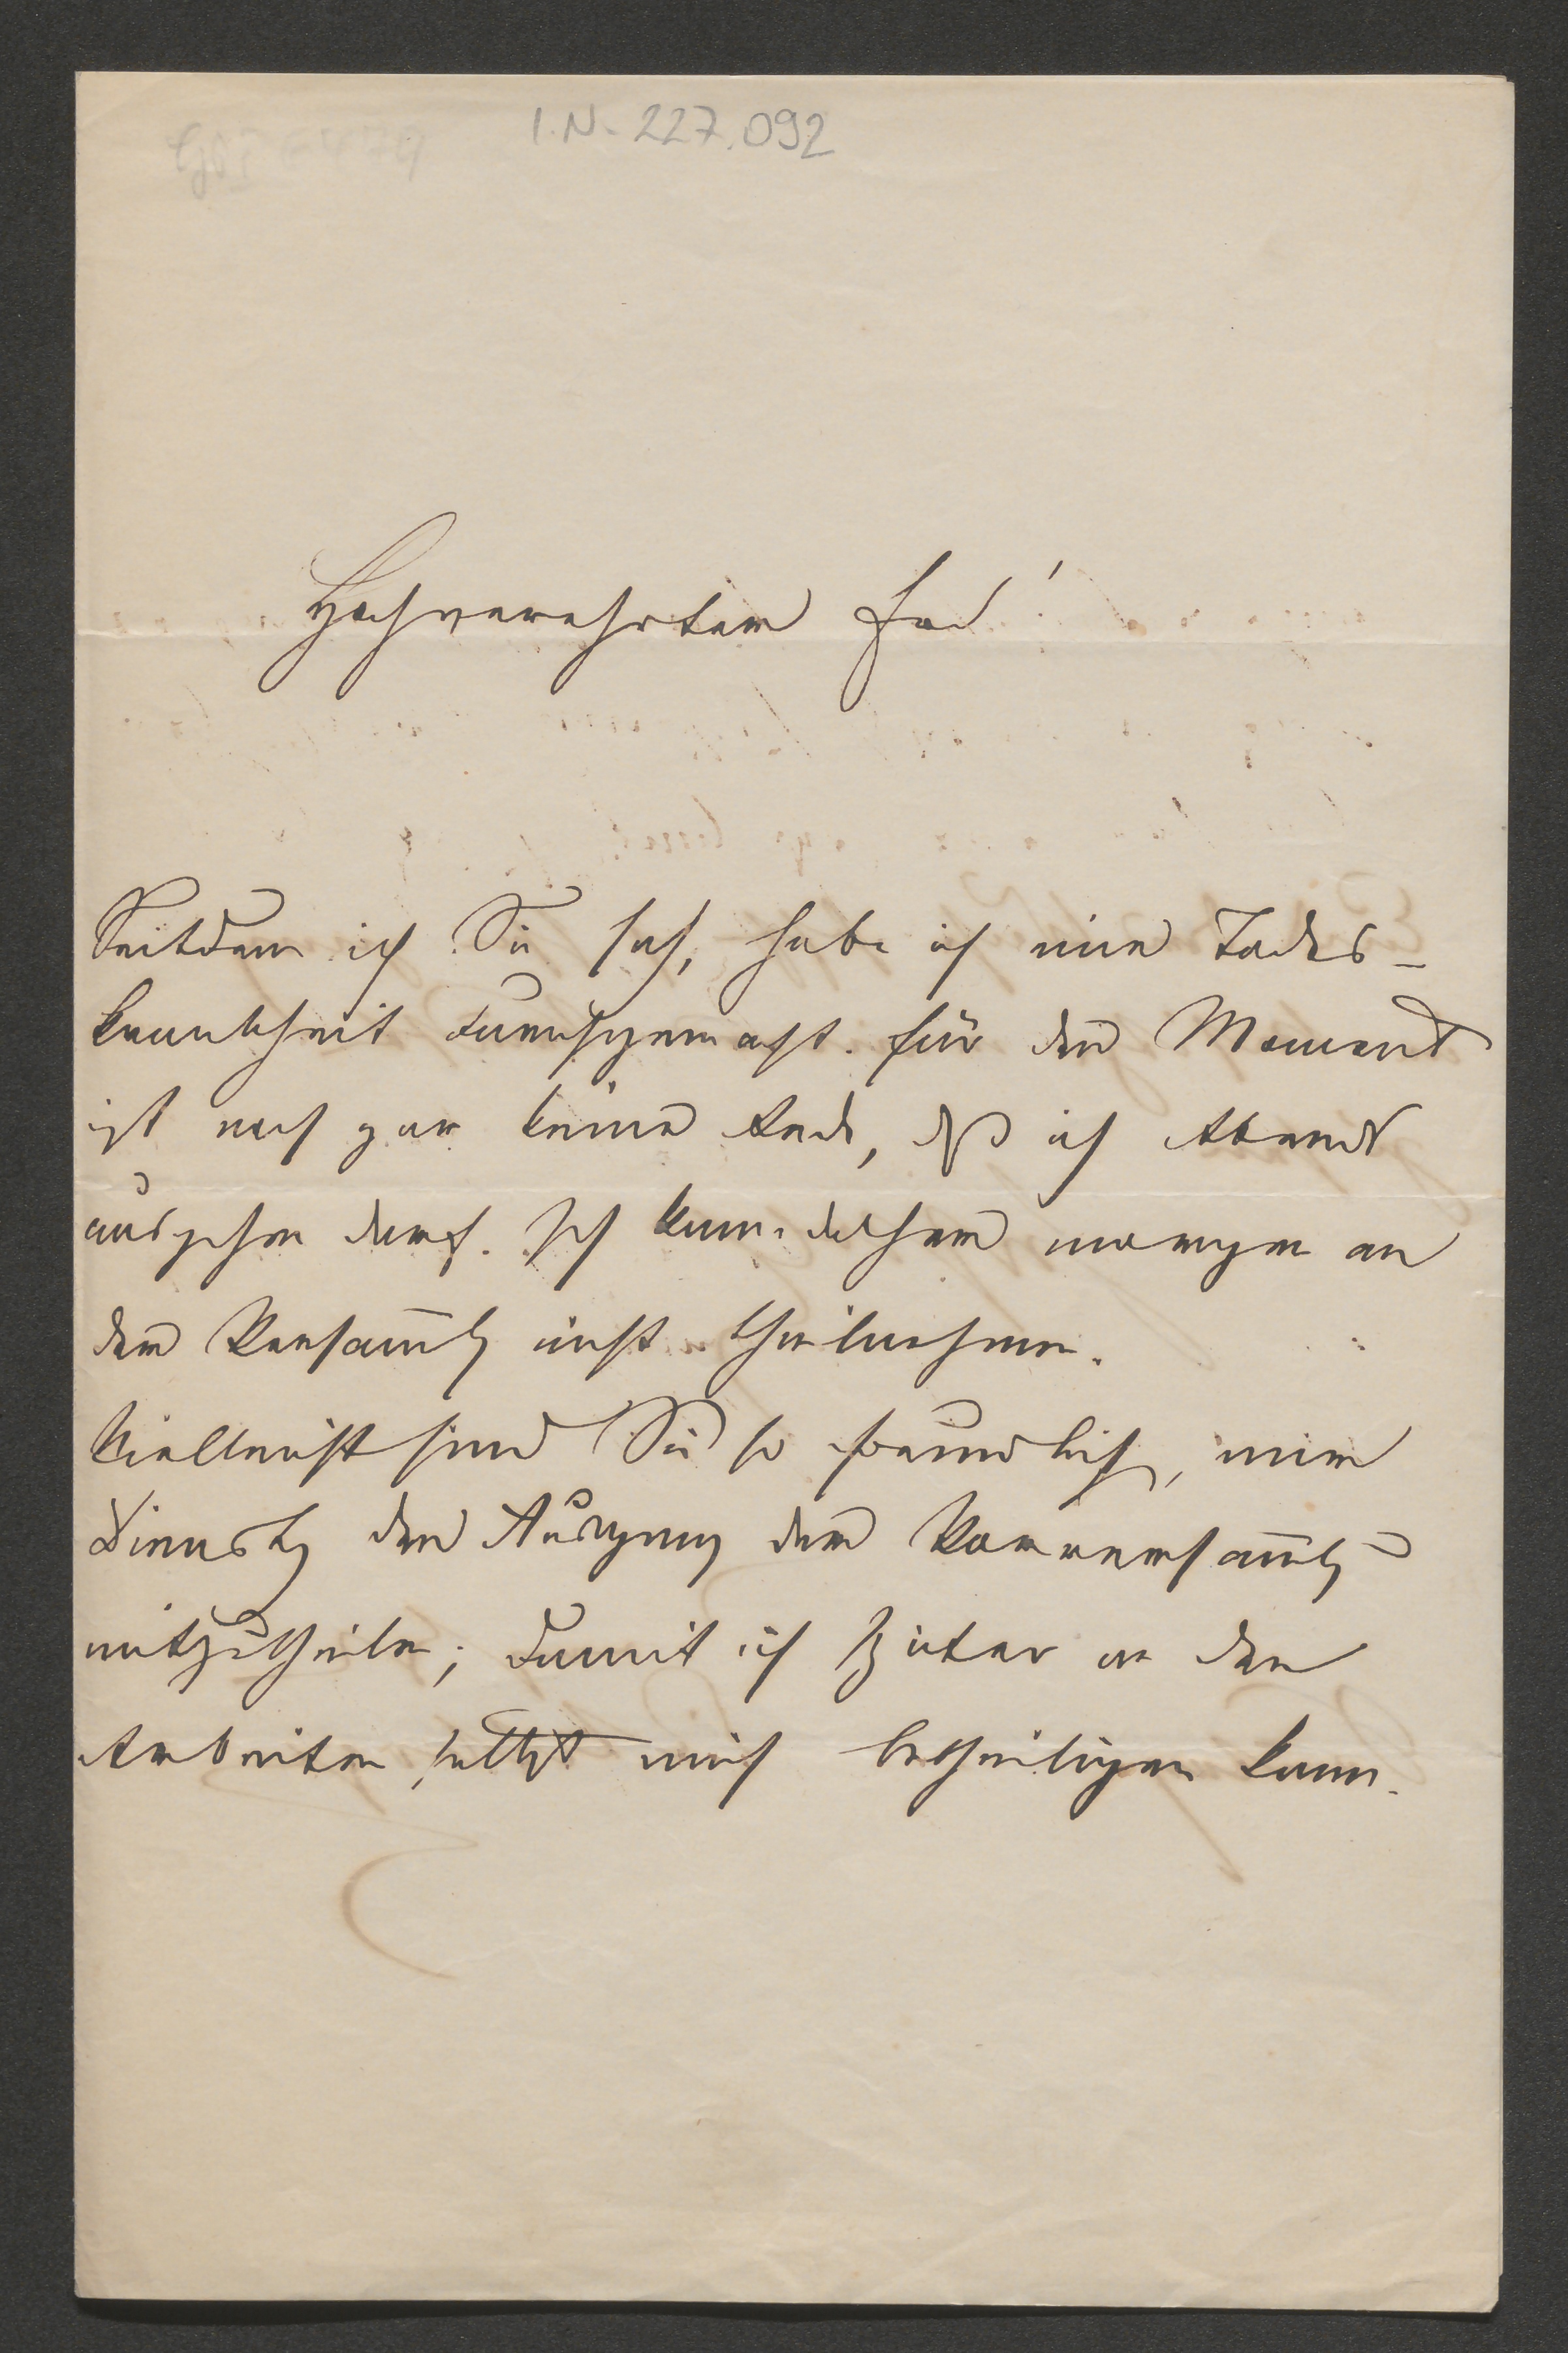 I.N. 227.092
Hochverehrter Herr!
Seitdem ich Sie sah, habe ich eine Todes-
krankheit durchgemacht. Für den Moment
ist noch gar keine Rede, dß ich Abends
ausgehen darf. Ich kann daher morgen an
der Versammlg nicht theilnehmen.
Vielleicht sind Sie so freundlich, mir
Dienstg den Ausgang der Vorversammlg
mitzutheilen; damit ich später an den
Arbeiten selbst mich betheiligen kann.